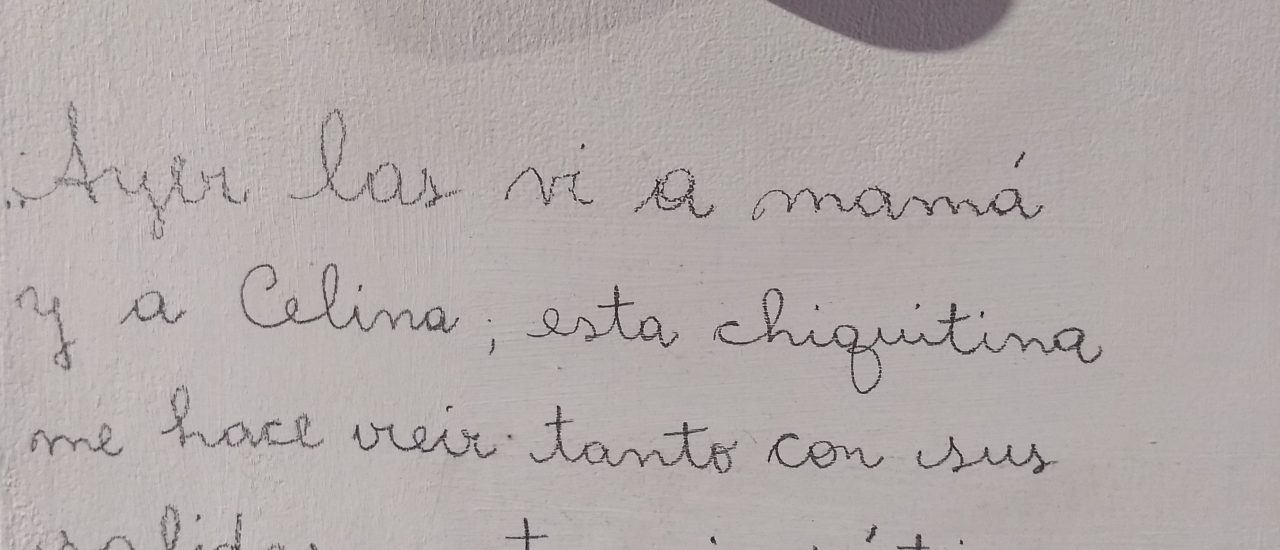 "Ayer las vi a mamá
y a Celina; esta chiquitina
me hace reir tanto con sus